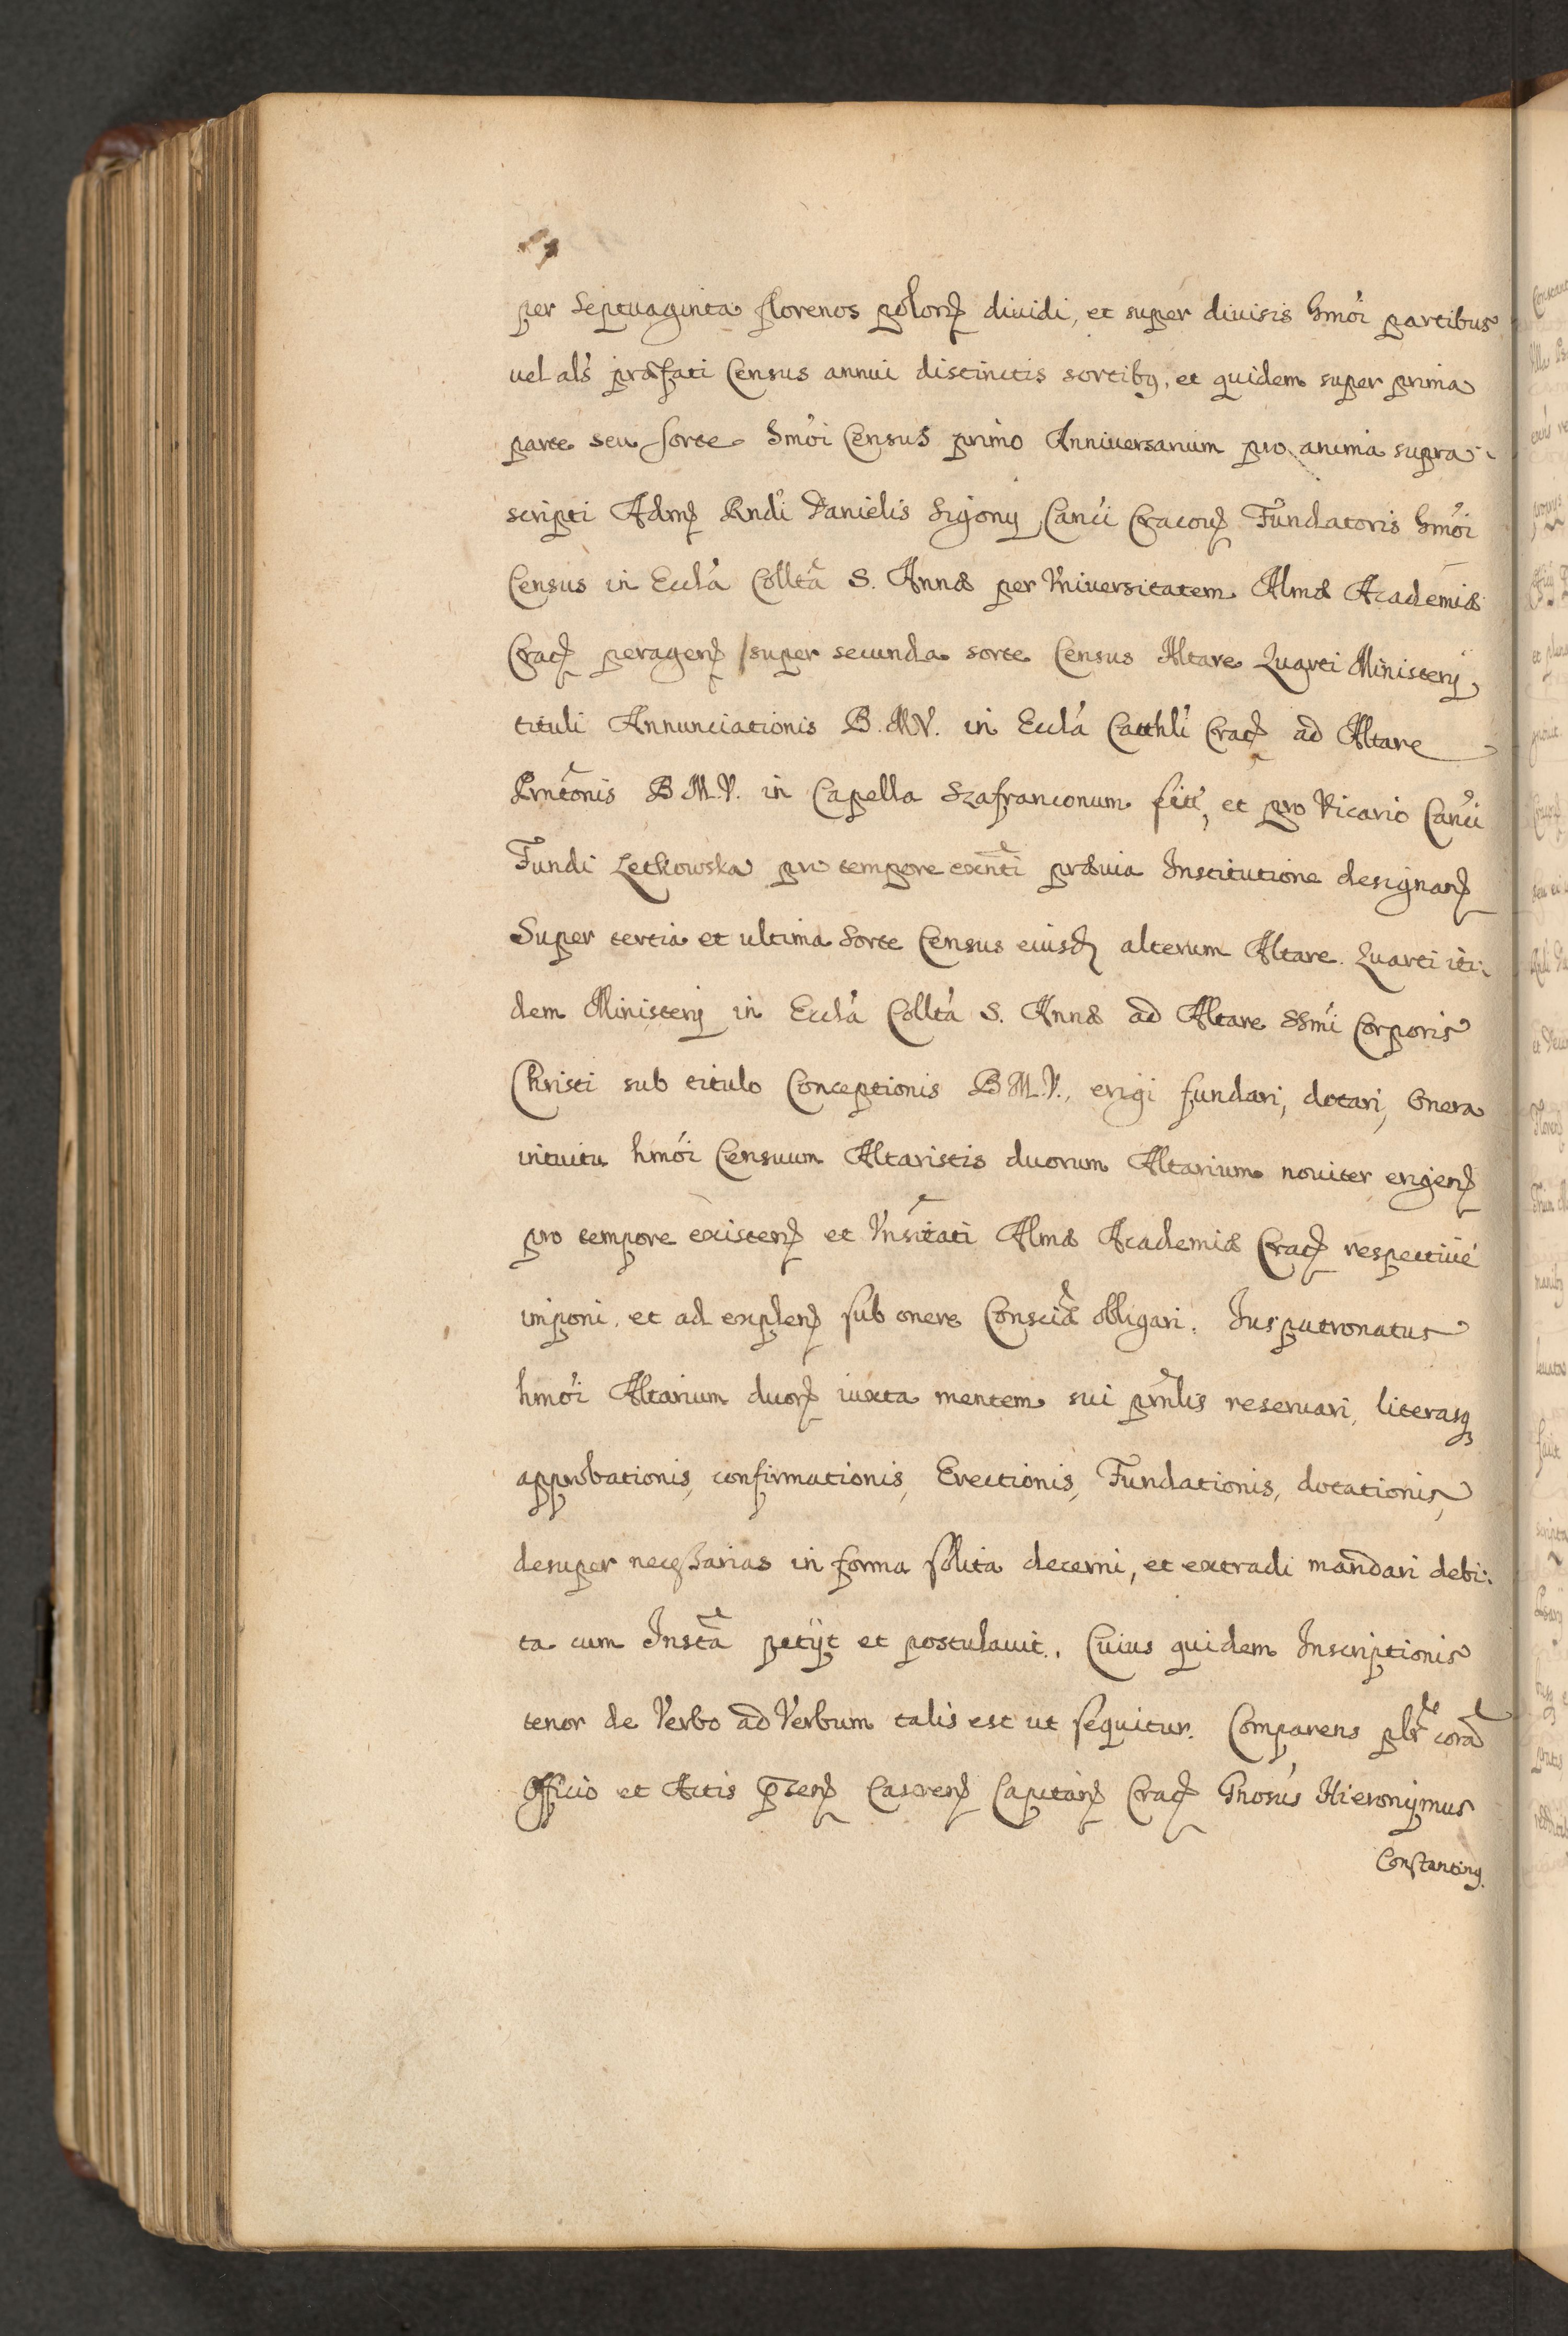 per Septuaginta florenos polonꝝ diuidi, et super diuisis hmo̓i partibus
uel al̓s præfati Census annui distinctis sortibꝰ, et quidem super prima
parte seu sorte hmo̓i Census primo Anniuersarium pro anima supra-
scripti Admꝝ Rndi̓ Danielis Sigony Canci̓ Cracouꝝ Fundatoris hmo̓i
Census in Eccla̓ Collta̓ S. Annæ per Vniuersitatem Almæ Academiæ
Cracꝝ peragenꝝ /super secunda sorte Census Altare Quarti Ministerij,
tituli Annunciationis B. M V. in Eccla̓ Catthli̓ Cracꝝ ad Altare
Prnto̓nis B M. V. in Capella Szafranconum sitt, et pro Vicario Canci̓
Fundi Letkowska pro tempore exn̄ti præuia Institutione designanꝝ
Super tertia et ultima Sorte Census eiusdꝫ alterum Altare Quarti iti:
dem Ministerij in Eccla̓ Collta̓ S. Annæ ad Altare SSmi̓ Corporis
Christi sub titulo Conceptionis B M. V., erigi fundari, dotari, Onera
intuitu hmo̓i Censuum Altaristis duorum Altarium nouiter erigenꝝ
pro tempore existenꝝ et Vnsitati̓ Almæ Academiæ Cracꝝ respectiue
imponi, et ad explenꝝ sub onere Conscia̓ obligari. Ius patronatus
hmo̓i Altarium duorꝝ iuxta mentem sui prn̄lis reseruari, literasqꝫ
approbationis, confirmationis, Erectionis, Fundationis, dotationis,
desuper neceßarias in forma solita decerni, et extradi mandari debi:
ta cum Insta̓ petijt et postulauit. Cuius quidem Inscriptionis
tenor de Verbo ad Verbum talis est ut sequitur. Comparens plr̄ cora̓
Officio et Actis p̄senꝝ Castrenꝝ Capitanꝝ Cracꝝ Gnosus̓ Hieronymus
Constantinꝰ